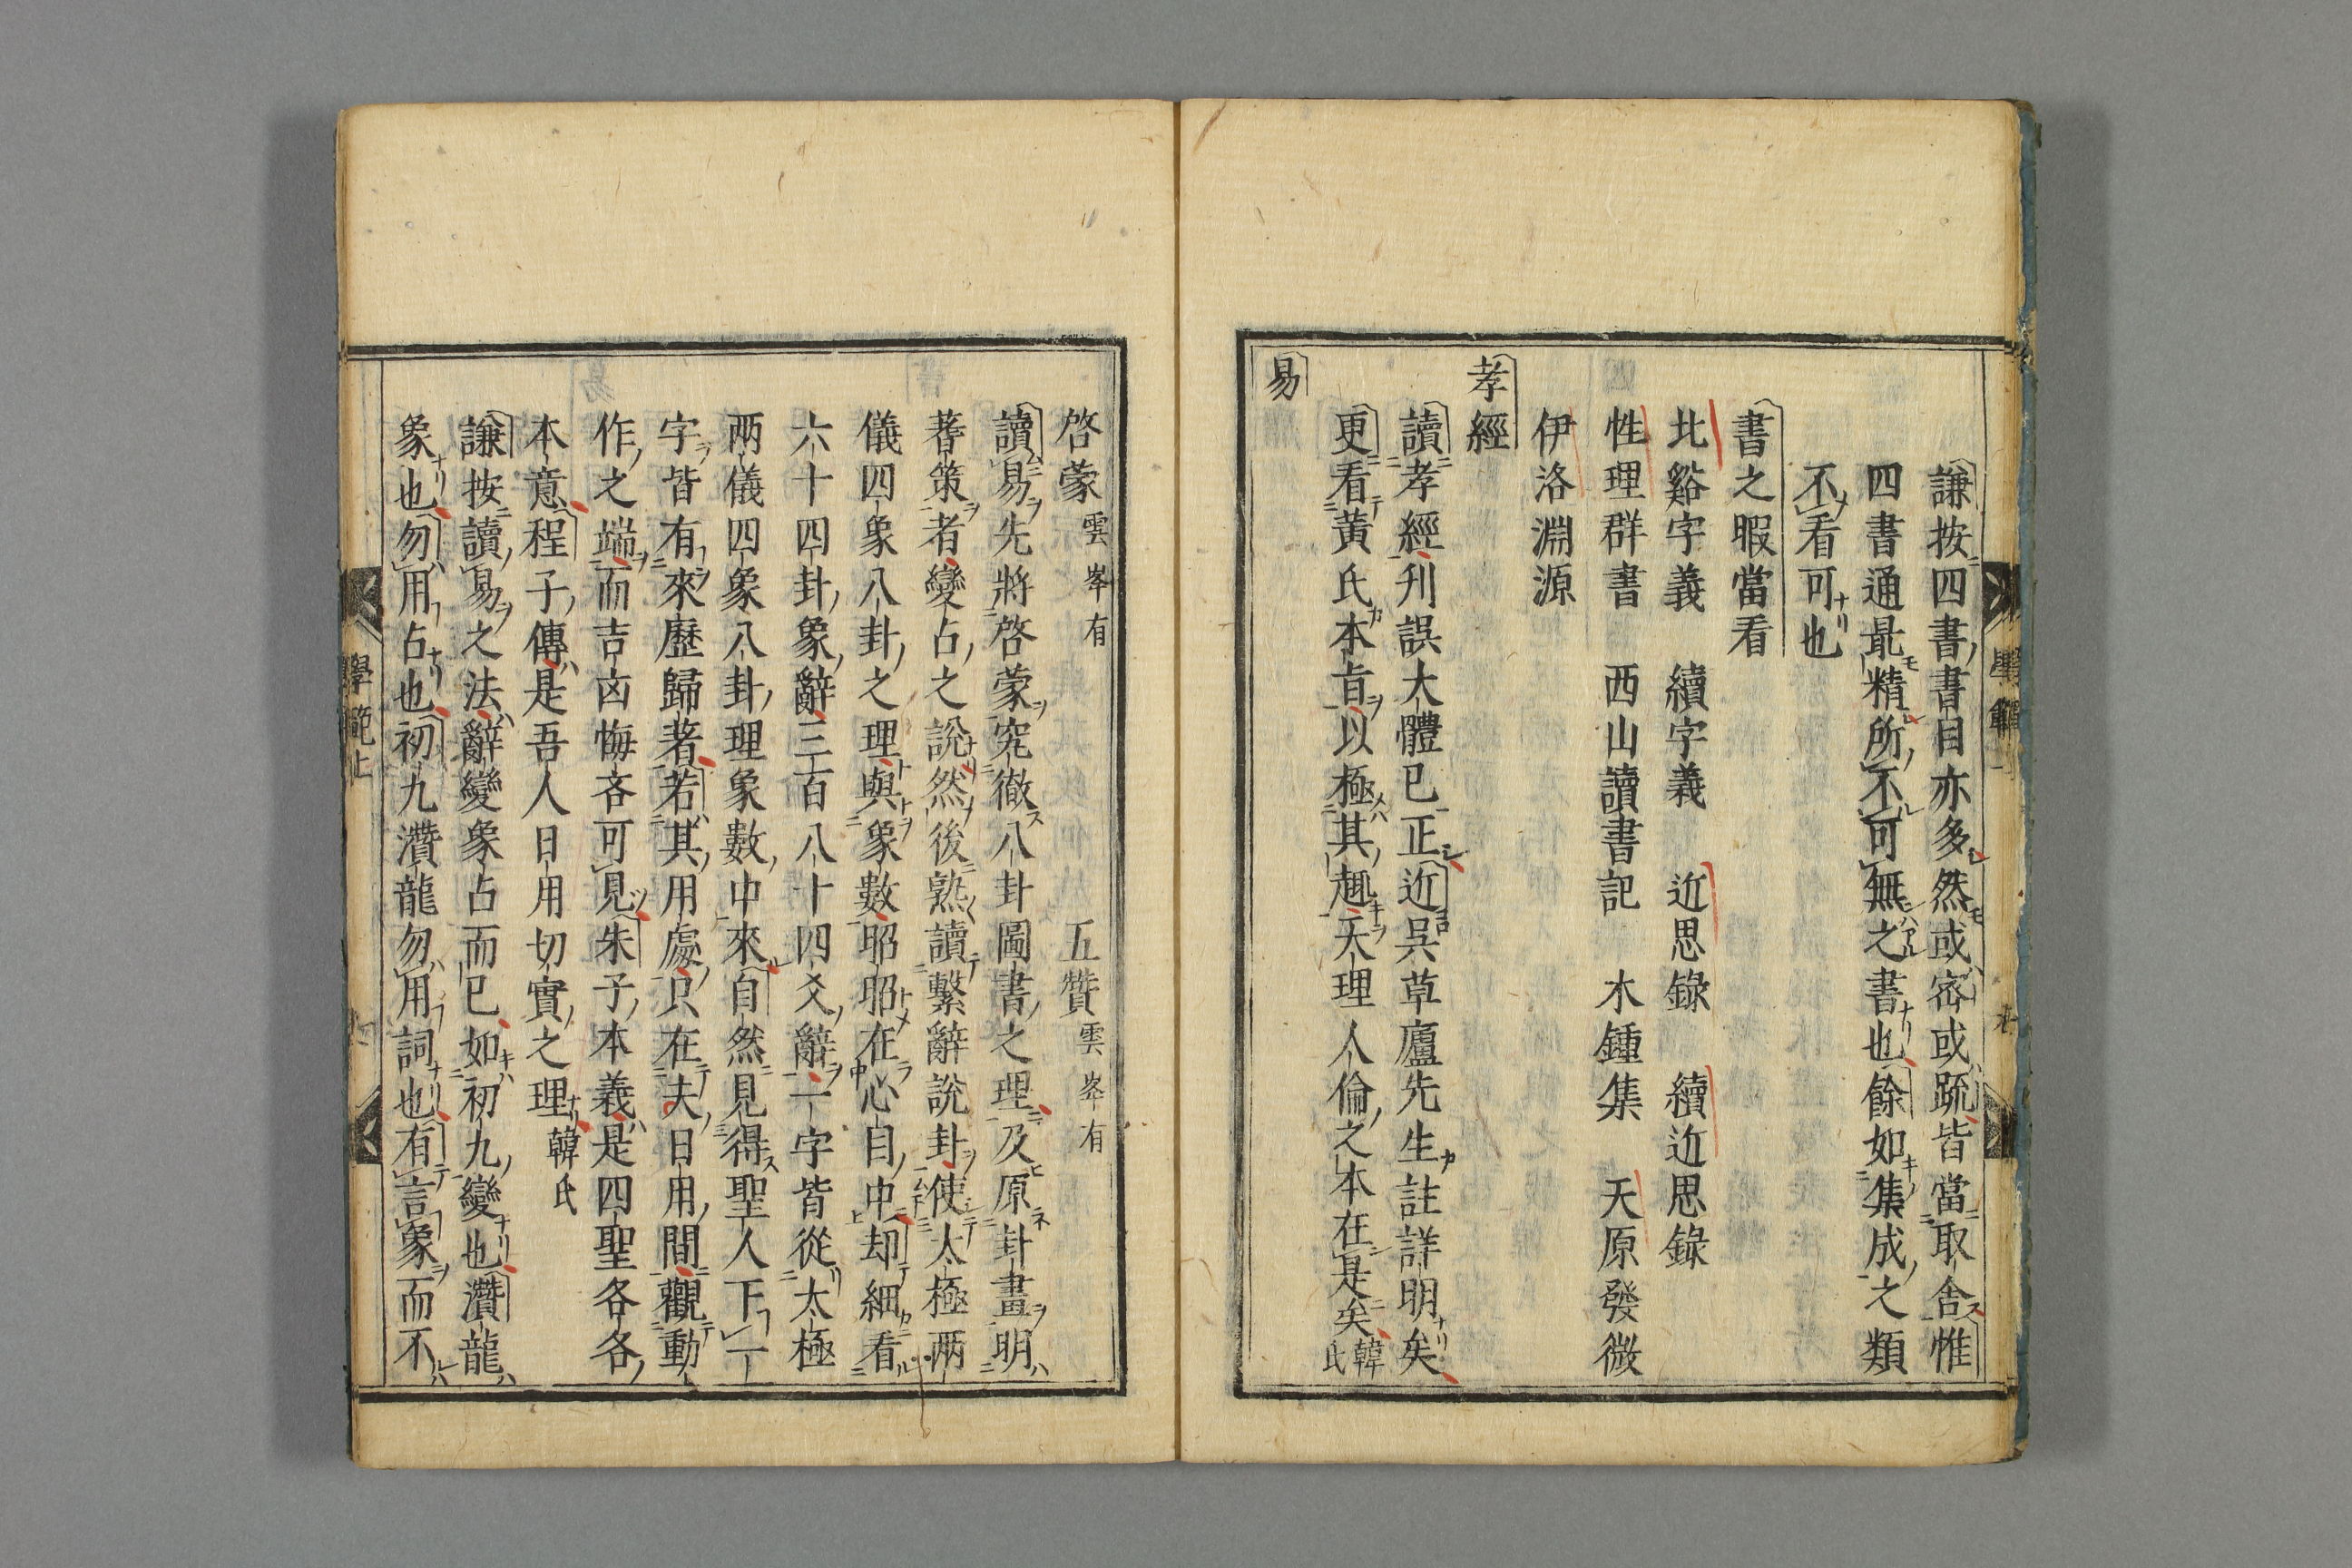 謙按四書書目亦多然或密或踈皆當取舍惟
四書通最精所不可無之書也餘如集成之類
不看可也
書之暇當看
北谿字義　續字義　近思錄　續近思錄
性理群書　西山讀書記　木鍾集　天原發微
伊洛淵源
孝經
讀孝經刊誤大體已正近吳草廬先生註詳明矣
更看黃氏本旨以極其趣天理人倫之本在是矣韓氏
易
啓蒙雲峯有　五贊雲峯有
讀易先將啓蒙究徹八卦圖書之理及原卦畫明
蓍策者變占之說然後熟讀繫辭說卦使太極兩
儀四象八卦之理與象數昭昭在心目中却細看
六十四卦象辭三百八十四爻辭一字皆從太極
兩儀四象八卦理象數中來自然見得聖人下一
字皆有來歷歸著若其用處只在夫日用間觀動
作之端而吉凶悔吝可見朱子本義是四聖各各
本意程子傳是吾人日用切實之理韓氏
謙按讀易之法辭變象占而已如初九變也灒龍
象也勿用占也初九灒龍勿用詞也有言象而不
學範上